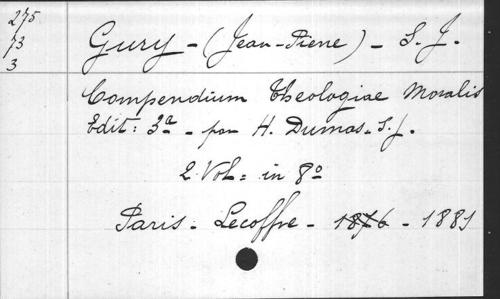 275
73
3
Gury - (Jean-Pierre) - S. J.
Compendium Theologiae Moralis
Edit: 3a - par H. Dumas. S. J.
2 Vol = in 8o
Paris - Lecoffre - 1876 - 1881